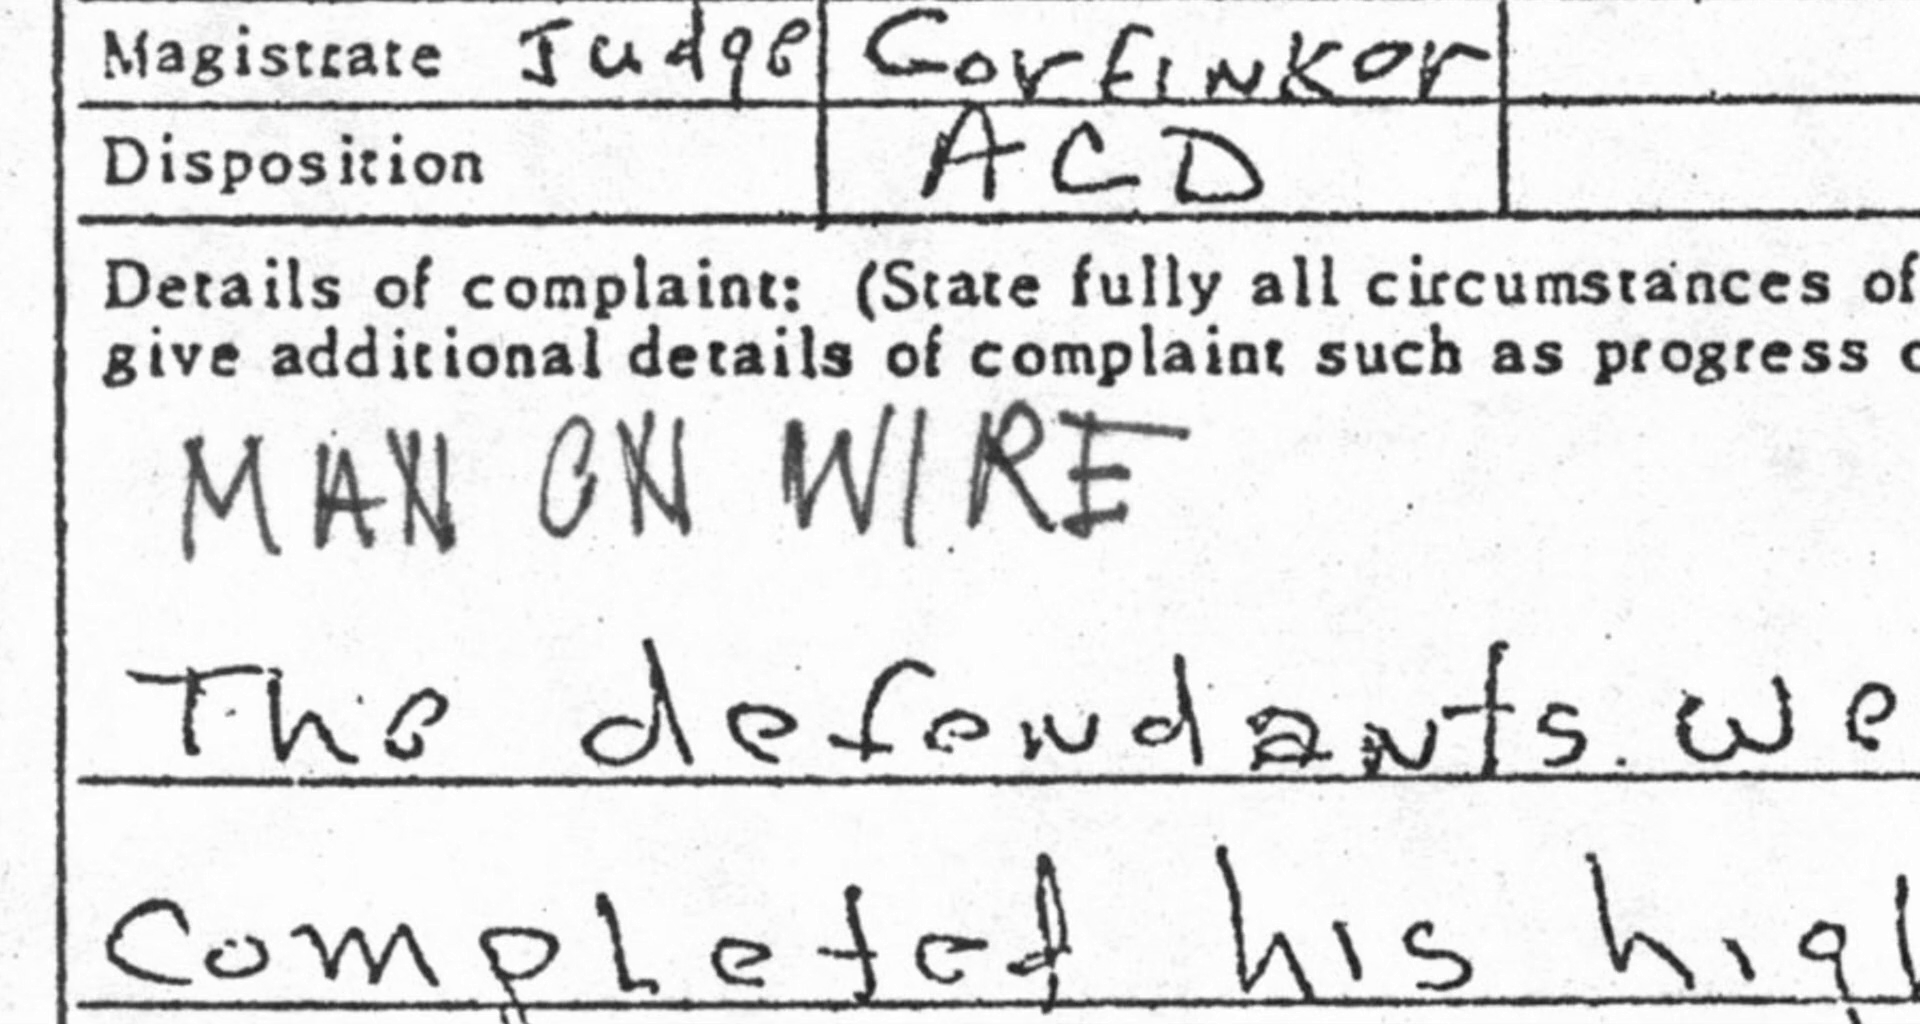 Magistrate Judge Corfinkor
Disposition ACD
Details of complaint: (State fully all circumstances of
give additional details of complaint such as progress
MAN ON WIRE
The defendants. we
Completed his